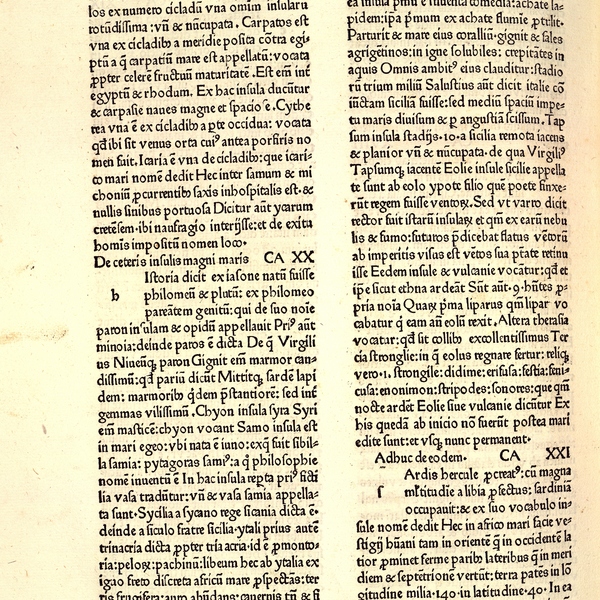 los ex numero cicladū vna omīm insularū
rotūdissima : vñ & nūcupata. Carpatos est
vna ex cicladib⁹ a meridie posita cōtra egi⸗
ptū a q̄ carpatiī mare est appellatū : vocata
ꝓpter celerē fructuū maturitatē. Est eīm int̄
egyptū & rhodum. Ex hac insula dicūtur
& carpasie naues magne et spacio ē. Cythe
rea vna ē ex cicladib⁹ a ꝑte occidua: vocata
qđ ibi sit venus orta cui⁹ antea porfiris no
men fuit. Icaria ē vna de cicladib⁹: que icari⸗
co mari nomē dedit Hec inter samum & mi
choniū ꝓcurrentib⁹ saxis inhospitalis est. &
nullis sinibus portuosa Dicitur aūt ycarum
cretēsem. ibi naufragio interijsse: et de exitu
hoīmis impositū nomen loco.
De ceteris insulis magni maris CA XX
Istoria dicit ex iasone natū fuisse
b philomeū & plutū: ex philomeo
pareātem genitū: qui de suo noīe
paron insulam & opidū appellauit Pri⁹ aūt
minoia: deinde paros ē dicta De q̄ Virgili
us Niueāq; paron Gignit eīm marmor can⸗
dissimū: qđ pariū dicūt Mittitq; sardē lapi
dem: marmorib⁹ q̄dem p̄stantiorē: sed int̄
gemmas vilissimū. Chyon insula syra Syri
eīm masticē: chyon vocant Samo insula est
in mari egeo: vbi nata ē iuno: ex q̄ fuit sibil⸗
la samia: pytagoras sami⁹: a q̄ philosophie
nomē inuentū ē In hac insula repta pri⁹ fictī
lia vasa tradūtur: vñ & vasa samia appella⸗
ta sunt. Sycilia a sycano rege sicania dicta ē.
deinde a siculo fratre sicilia. ytali prius autē
trinacria dicta ꝓpter tria acra. id ē ꝓmonto⸗
ria: pelorū: pachinū: libeum hec ab ytalia ex
iguo freto discreta africū mare ꝓspectās: ter
ris frugifera: auro abūdans: cauernis tn̄ & fi
ea insula pmū ē inuenta comedia: achate la⸗
pidem: ip̄a p̄mum ex achate flumīe ꝓtulit.
Parturit & mare eius coralliū. gignit & sales
agrigētinos: in igne solubiles: crepitātes in
aquis Omnis ambit⁹ eius clauditur: stadio
rū trium miliū Salustius aūt dicit italie cō
iūctam siciliā fuisse: sed mediū spaciū impe⸗
tu maris diuisum & p̄ angustiā scissum. Tap
sum insula stadijs. 10. a sicilia remota iacens
& planior vñ & nūcupata. de qua Virgili⁹
Tapsumq; iacentē Eolie insule sicilie appella
te sunt ab eolo ypote filio quē poete finxe⸗
rūt regem fuisse ventoꝝ. Sed vt varro dicit
rector fuit istarū insulaꝝ et qm̄ ex earū nebu
lis & fumo: futuros p̄dicebat flatus vētorū
ab imperitis visus est vētos sua p̄tate retinu
isse Eedem insule & vulcanie vocātur: qđ et
ip̄e sicut ethna ardeāt Sūt aūt. 9. hn̄tes ꝓ⸗
pria noīa Quaꝝ p̄ma liparus qm̄ lipar⁹ vo
cabatur q̄ eam an̄ eolū rexit. Altera therasia
vocatur: qđ sit collib⁹ excollentissimus Ter
cia strongīle: in q̄ eolus regnare fertur: reliq̄
vero. 1. strongile: didime: erifusa: festia: feni⸗
cusa: enonimon: stripodes: sonores: que qm̄
nocte ardēt Eolie siue vulcanie dicūtur Ex
his quedā ab inicio nō fuerūt postea mari
edite sunt: et vsq; nunc permanent.
Adhuc de eodem. CA XXI
Ardis hercule ꝓcreat⁹: cū magna
s ml̄titudie a libia ꝓfectus: sardiniā
occupauit: & ex suo vocabulo in⸗
sule nomē dedit Hec in africo mari facie ve⸗
stigij hūani tam in orientē q̄ in occidentē la
tior ꝓminet ferme parib⁹ lateribus q̄ in meri
diem & septētrionē vertūt: terra patēs in lō
gitudine milia. 140. in latitudine. 40. In ea